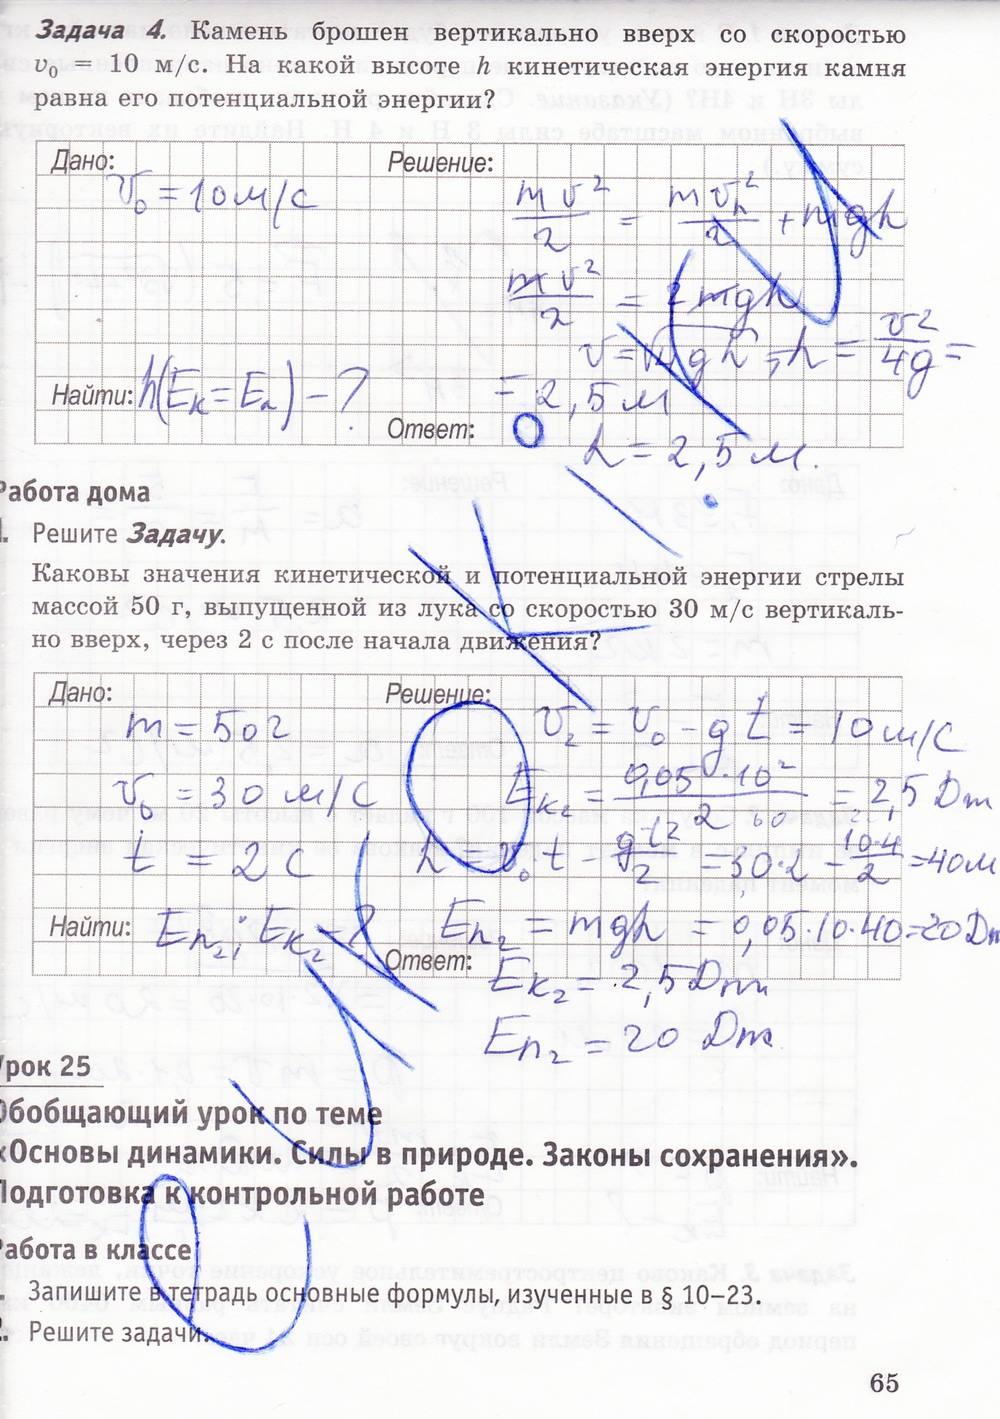 Задача 4. Камень брошен вертикально вверх со скоростью
v₀ = 10 м/с. На какой высоте h кинетическая энергия камня
равна его потенциальной энергии?
Дано:
v₀ = 10 м/с
Найти: h(Eк = Eп) – ?
Решение:
mv²/2 = mvₕ²/2 + mgh
mv²/2 = 2mgh
h = v²/4g =
= 2,5 м
Ответ:
h = 2,5 м.
Работа дома
Решите Задачу.
Каковы значения кинетической и потенциальной энергии стрелы
массой 50 г, выпущенной из лука со скоростью 30 м/с вертикаль-
но вверх, через 2 с после начала движения?
Дано:
m = 50 г
v₀ = 30 м/с
t = 2 с
Найти: Eп₂; Eк₂ – ?
Решение:
v₂ = v₀ – gt = 10 м/с
Eк₂ = 0,05 · 10²/2 = 2,5 Дж
h = v₀t – gt²/2 = 30·2 – 10·4/2 = 40м
Eп₂ = mgh = 0,05·10·40=20Дж
Ответ:
Eк₂ = 2,5 Дж
Eп₂ = 20 Дж
Урок 25
Обобщающий урок по теме
«Основы динамики. Силы в природе. Законы сохранения».
Подготовка к контрольной работе
Работа в классе
Запишите в тетрадь основные формулы, изученные в § 10–23.
Решите задачи.
65